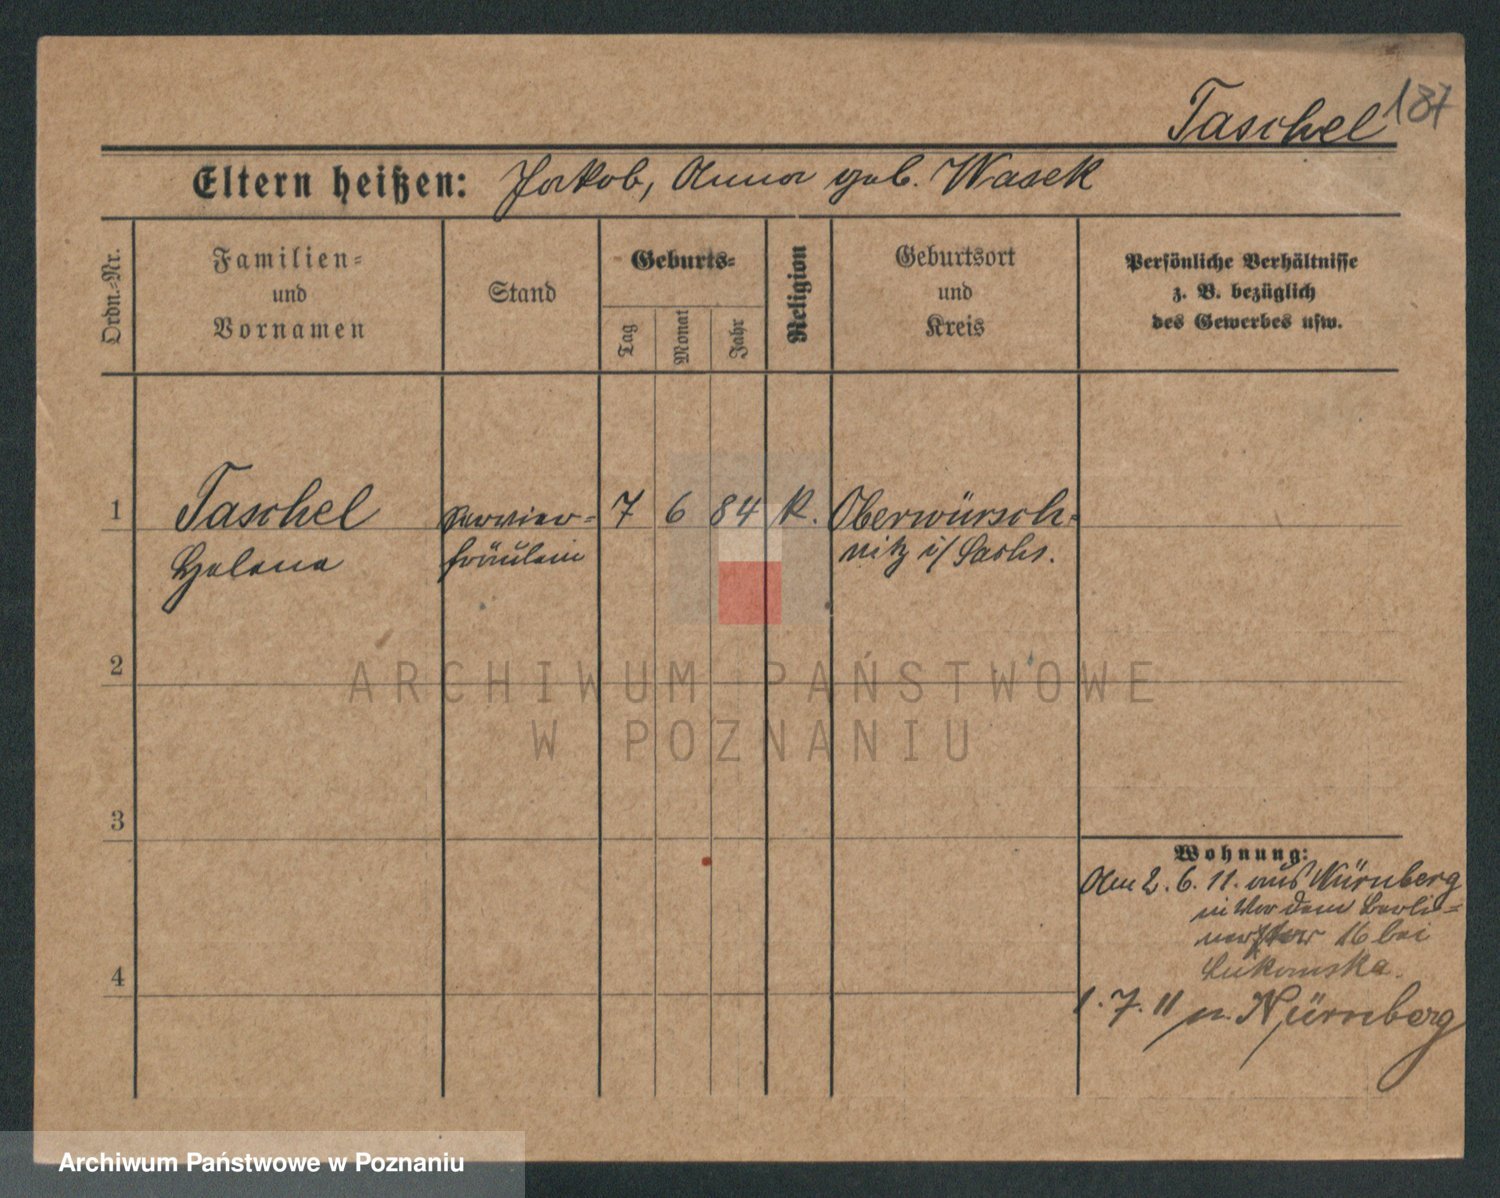 Taschel 187
Eltern heißen: Jakob, Anna geb. Wasek
Ordn.-Nr.
Familien-
und
Vornamen
Stand
Geburts-
Tag
Monat
Jahr
Religion
Geburtsort
und
Kreis
Persönliche Verhältnisse
z. B. bezüglich
des Gewerbes usw.
1
Taschel
Helena
Servier-
fräulein
7 6 84 K.
Oberwürsch-
nitz i/ Sachs.
2
3
4
Wohnung:
Am 2. 6. 11. aus Nürnberg
n. Vor dem Berli-
nertor 16 bei
Lukomska.
1. 7. 11 n. Nürnberg
ARCHIWUM PAŃSTWOWE
W POZNANIU
Archiwum Państwowe w Poznaniu